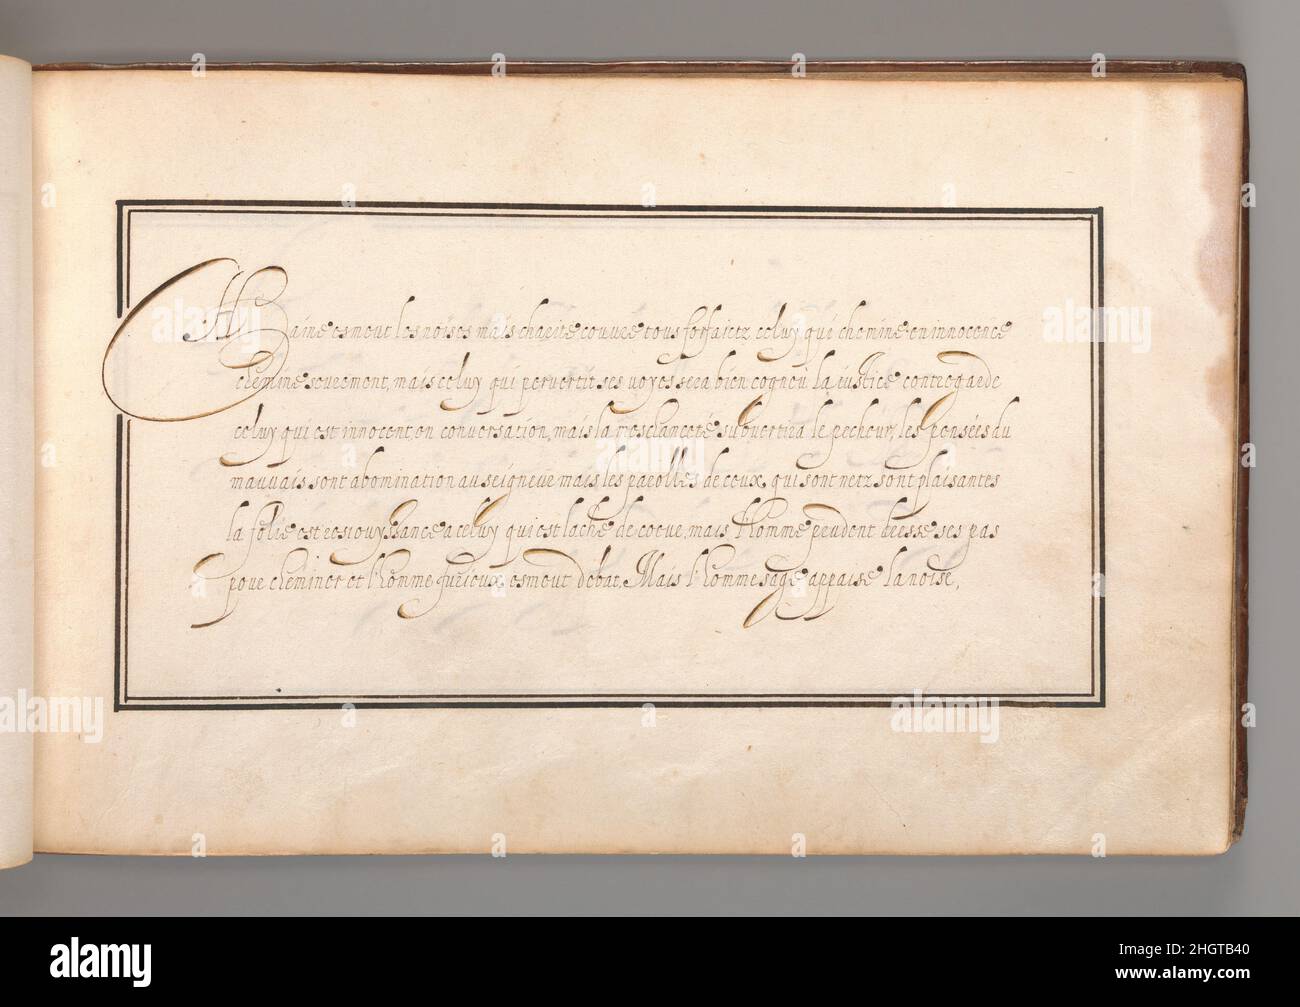 Haine esmeut les noises mais charité couvré tous forfaictz celuy qui chemine en innocence
chemine seurement, mais celuy qui pervertit ses voyes sera bien cogneu la iustice contregarde
celuy qui est innocent en conversation, mais la meschanceté subvertira le pecheur, les pensées du
mauvais sont abomination au seigneur mais les parolles de ceux, qui sont netz sont plaisantes
la folie est resiouyssance a celuy qui est lache de coeur, mais l'homme prudent dresse ses pas
pour cheminer et l'homme furieux esmeut debat. Mais l'homme sage appaise la noise,
alamy
Image ID: 2HGTB40
www.alamy.com